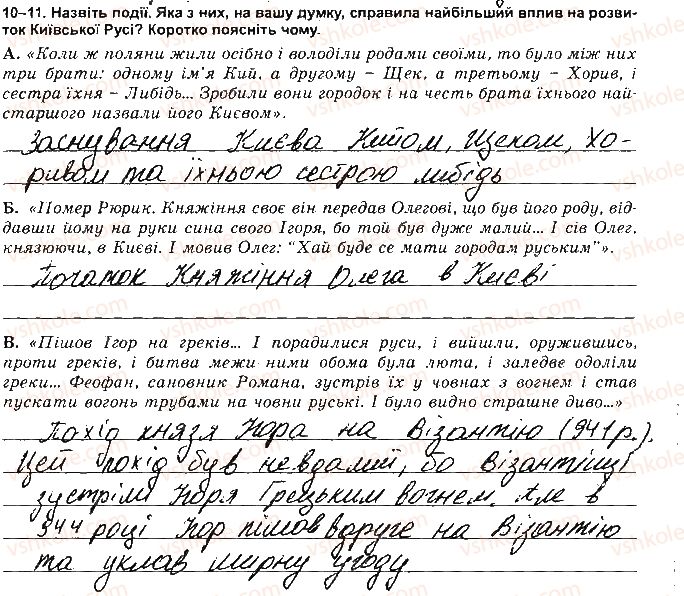 10–11. Назвіть події. Яка з них, на вашу думку, справила найбільший вплив на розви-
ток Київської Русі? Коротко поясніть чому.
А. «Коли ж поляни жили осібно і володіли родами своїми, то було між них
три брати: одному ім'я Кий, а другому – Щек, а третьому – Хорив, і
сестра їхня – Либідь... Зробили вони городок і на честь брата їхнього най-
старшого назвали його Києвом».
Заснування Києва Кийом, Щеком, Хо-
ривом та їхньою сестрою либідь
Б. «Помер Рюрик. Княжіння своє він передав Олегові, що був його роду, від-
давши йому на руки сина свого Ігоря, бо той був дуже малий... І сів Олег,
князюючи, в Києві. І мовив Олег: "Хай буде се мати городам руським"».
Початок Княжіння Олега в Києві
В. «Пішов Ігор на греків... І порадилися руси, і вийшли, оружившись,
проти греків, і битва межи ними обома була люта, і заледве одоліли
греки... Феофан, сановник Романа, зустрів їх у човнах з вогнем і став
пускати вогонь трубами на човни руські. І було видно страшне диво...»
Похід князя Ігора на Візантію (941 р.).
Цей похід був невдалий, бо Візантійці
зустріли Ігоря Грецьким вогнем. Але в
944 році Ігор пішов вдруге на Візантію
та уклав мирну угоду
vshkole.com